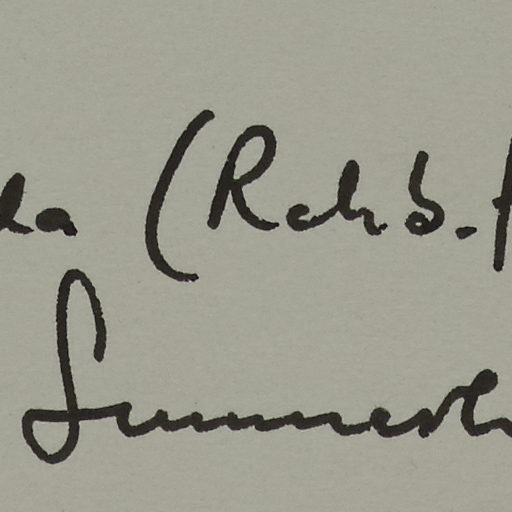 la (Rchb. f
Summerh